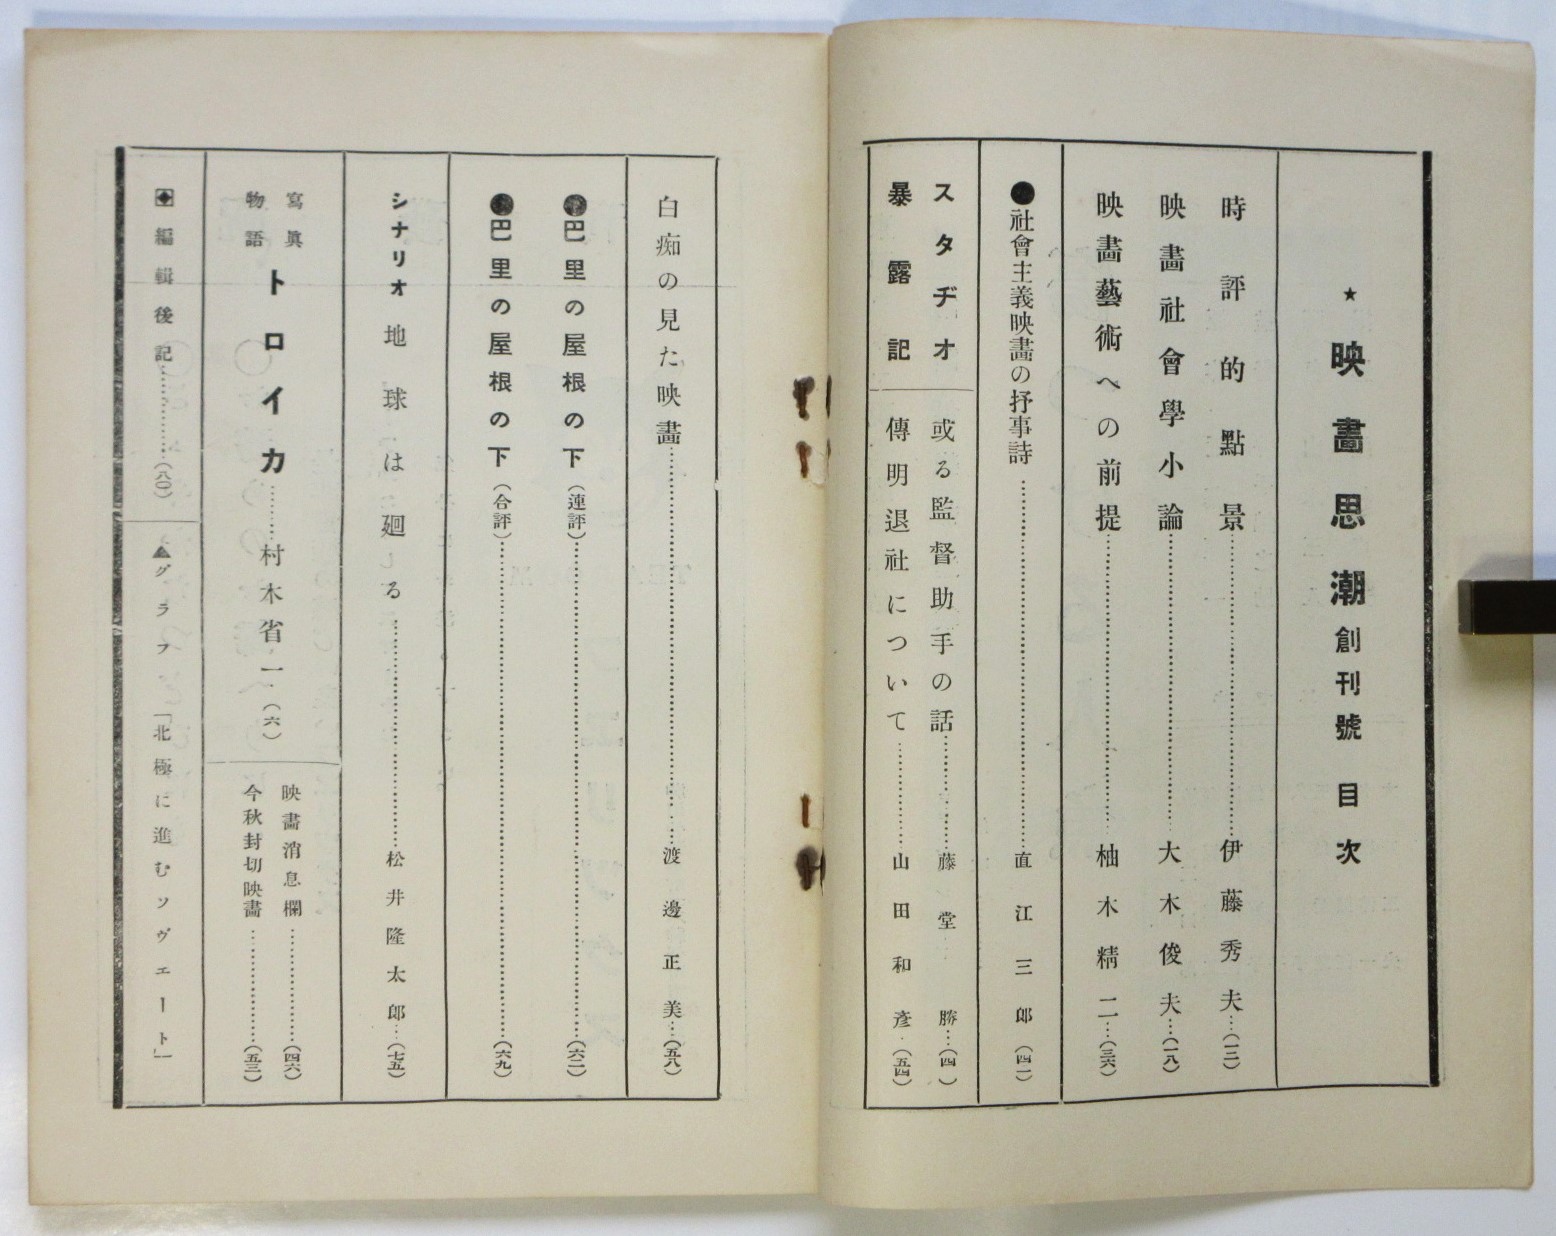 ★映畫思潮創刊號 目次
時評的點景……伊藤秀夫…(一二)
映畫社會學小論……大木俊夫…(一八)
映畫藝術への前提……柚木精二…(三六)
●社會主義映畫の抒事詩……直江三郎(四二)
スタヂオ
暴露記
或る監督助手の話……藤堂勝…(四一)
傳明退社について……山田和彥…(五四)
白痴の見た映畫……渡邊正美…(五八)
●巴里の屋根の下(連評)……(六二)
●巴里の屋根の下(合評)……(六九)
シナリオ 地球は廻る……松井隆太郎…(七五)
寫眞
物語
トロイカ……村木省一…(六)
映畫消息欄……(四六)
今秋封切映畫……(五三)
編輯後記……(八〇)
▲グラフ「北極に進むソヴエート」